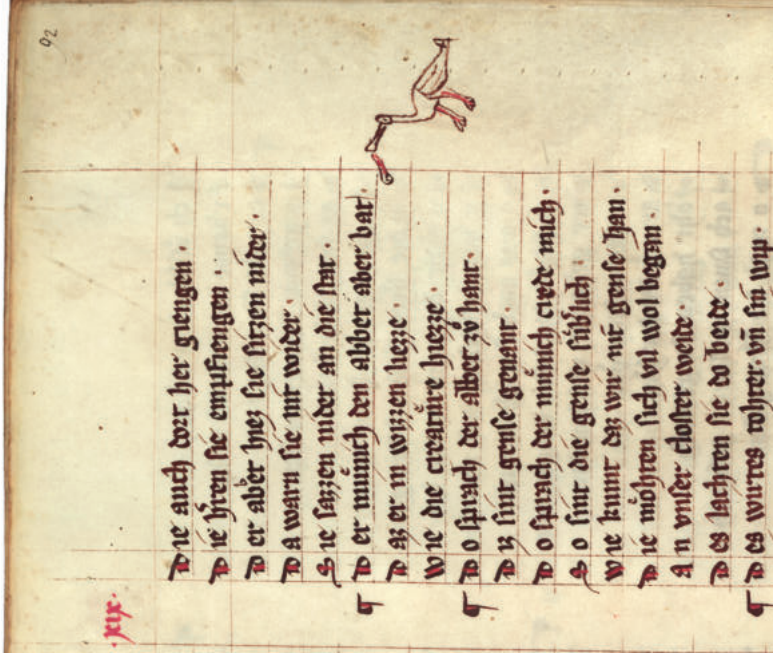 92
.xix.
Die auch dort her giengen.
Die h̄ren sie empfiengen.
Der abbet hiez sie sitzen nider.
Da warn sie nit wider.
Sie sazzen nider an die stat.
¶ Der münich den abbet aber bat
Daz er in wizzen liezze.
Wie die creatüre hiezze.
¶ Do sprach der abbet zů hant.
Diz sint gense genant.
Do sprach der münich crede mich.
So sint die gense süblich.
Wie kunt daz wir nit gense han
Die möhten sich vil wol began.
An vnser closter weide.
Des lachten sie do beide.
¶ Des wirtes tohter. vn̄ sin wip.